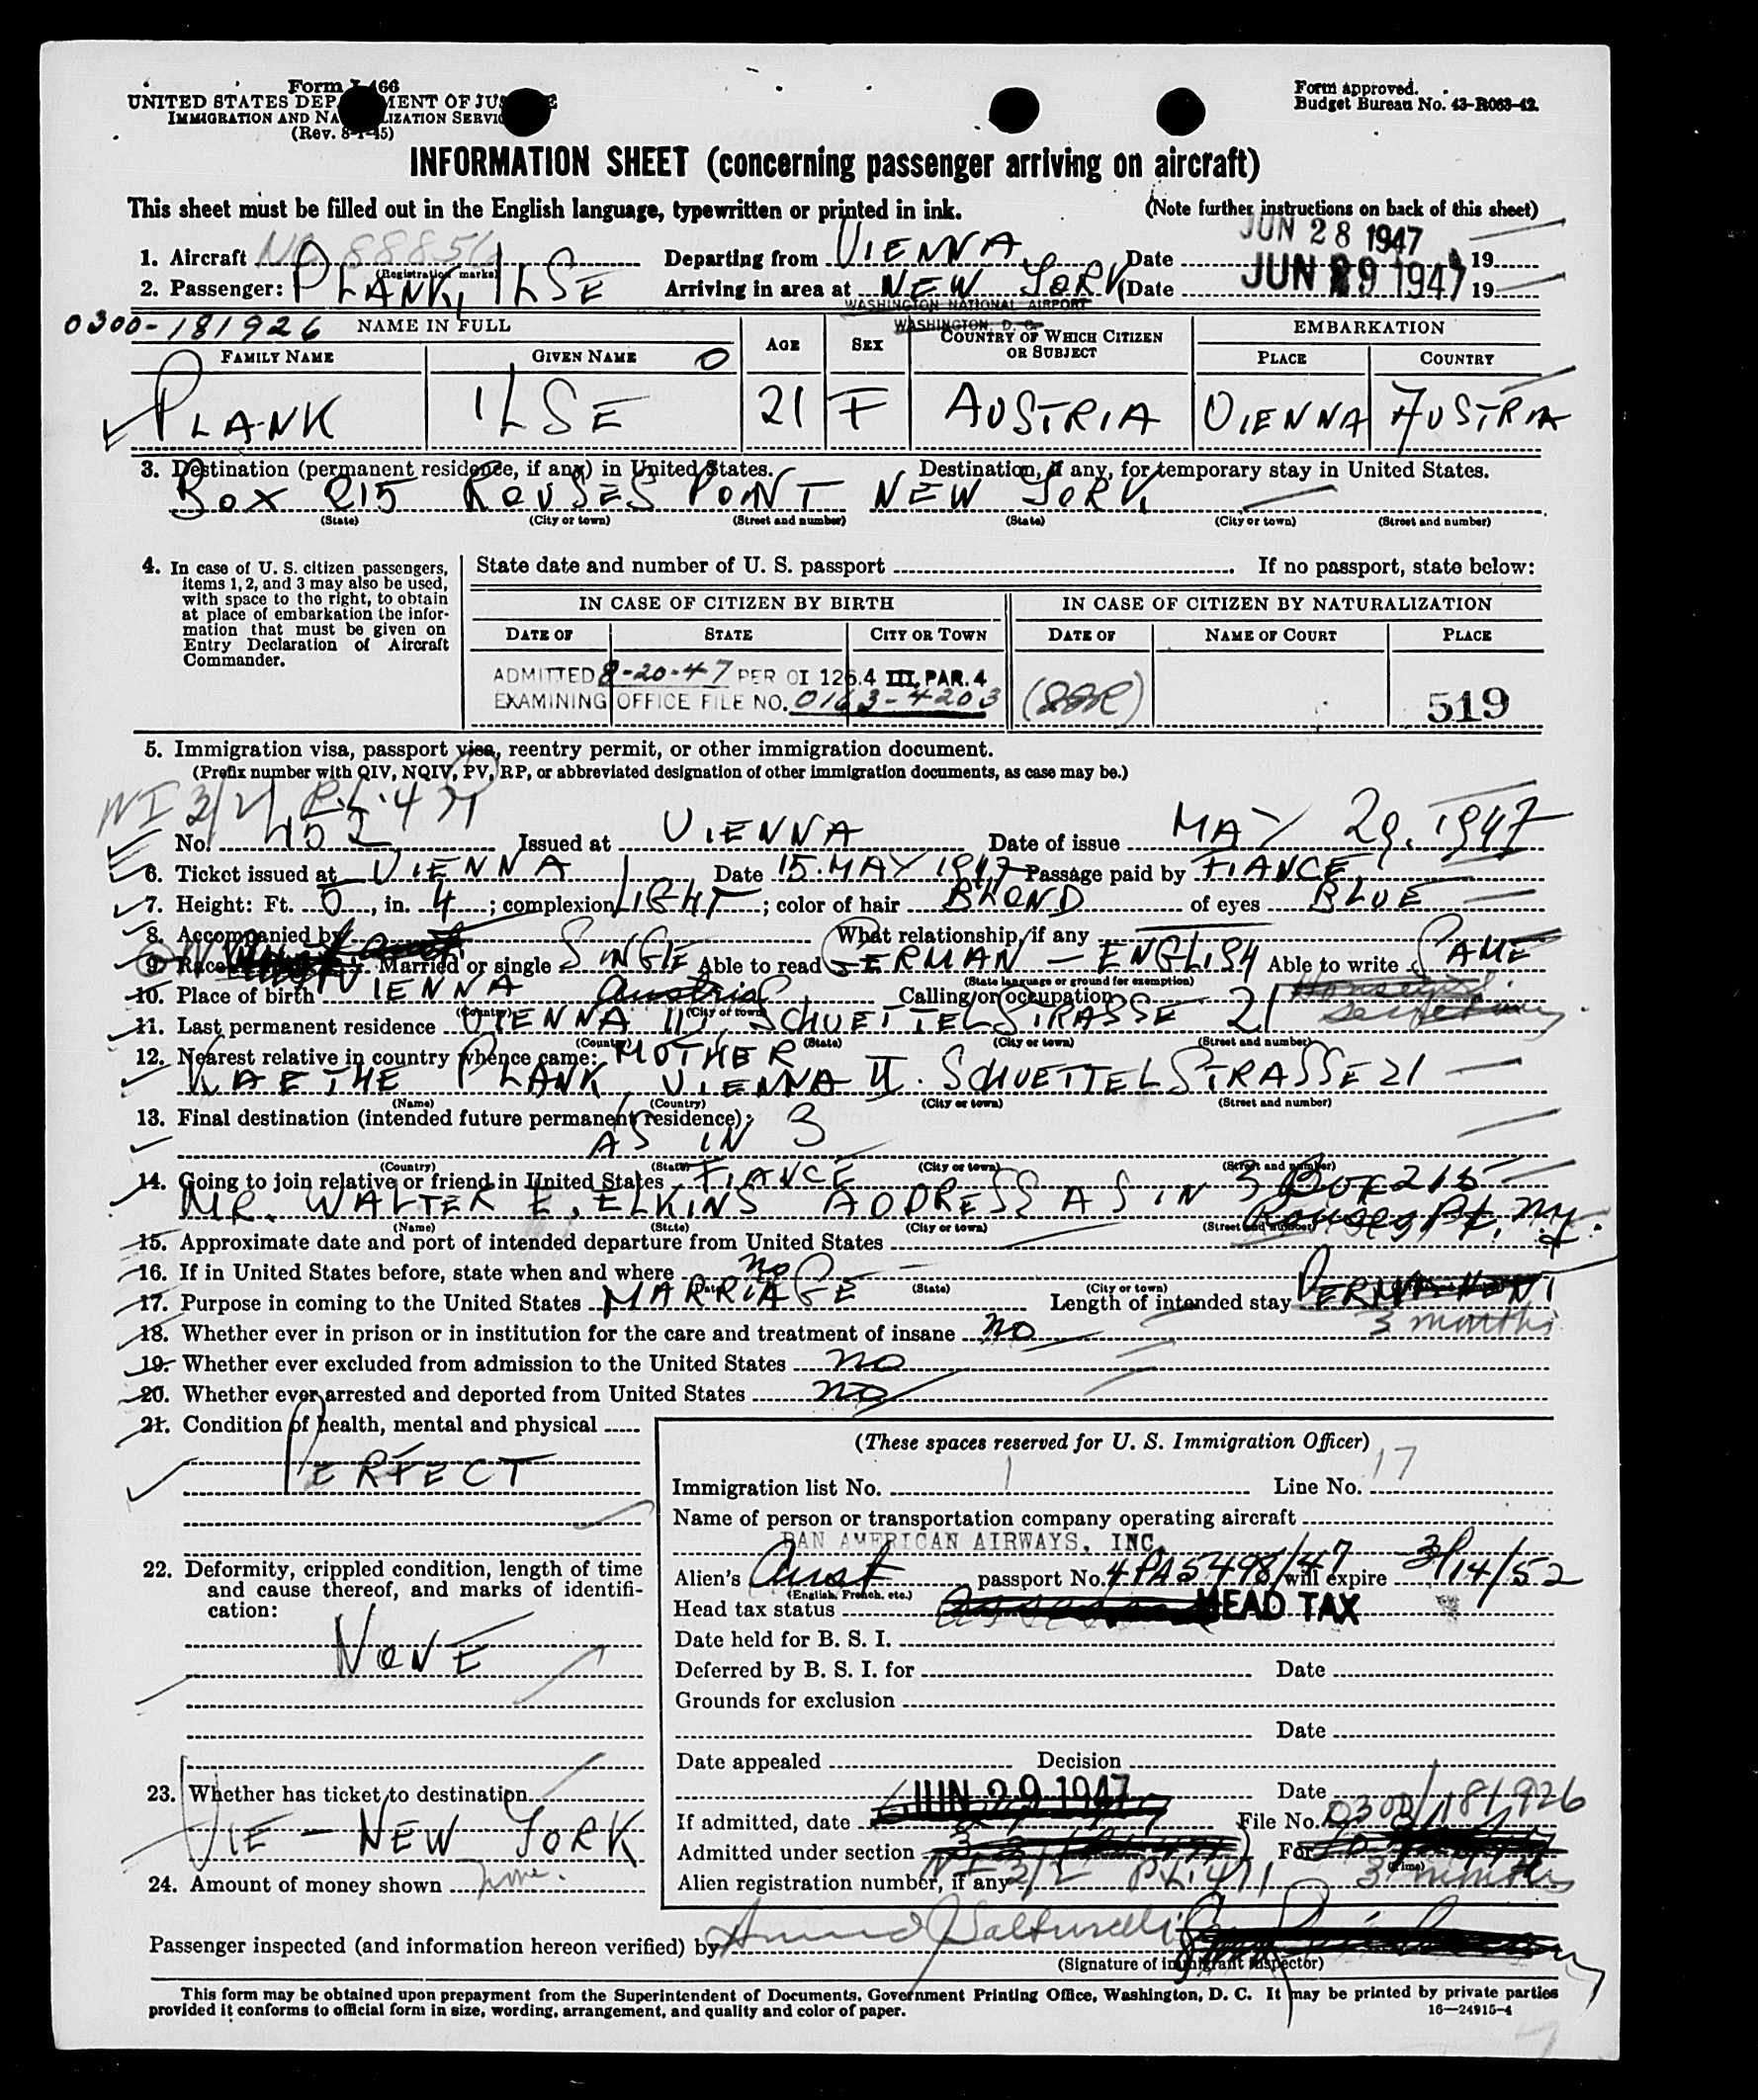 Form I-466
UNITED STATES DEPARTMENT OF JUSTICE
IMMIGRATION AND NATURALIZATION SERVICE
(Rev. 8-1-45)
Form approved.
Budget Bureau No. 43-R063-42.
INFORMATION SHEET (concerning passenger arriving on aircraft)
This sheet must be filled out in the English language, typewritten or printed in ink. (Note further instructions on back of this sheet)
1. Aircraft NC 88856 Departing from VIENNA Date JUN 28 1947, 19
(Registration marks)
2. Passenger: PLANK, ILSE Arriving in area at NEW YORK Date JUN 29 1947, 19
WASHINGTON NATIONAL AIRPORT
WASHINGTON, D. C.
0300-181926 NAME IN FULL AGE SEX COUNTRY OF WHICH CITIZEN OR SUBJECT EMBARKATION
FAMILY NAME GIVEN NAME O PLACE COUNTRY
PLANK ILSE 21 F AUSTRIA VIENNA AUSTRIA
3. Destination (permanent residence, if any) in United States. Destination, if any, for temporary stay in United States.
BOX 215 ROUSES POINT NEW YORK
(State) (City or town) (Street and number) (State) (City or town) (Street and number)
4. In case of U. S. citizen passengers, items 1, 2, and 3 may also be used, with space to the right, to obtain at place of embarkation the information that must be given on Entry Declaration of Aircraft Commander.
State date and number of U. S. passport If no passport, state below:
IN CASE OF CITIZEN BY BIRTH IN CASE OF CITIZEN BY NATURALIZATION
DATE OF STATE CITY OR TOWN DATE OF NAME OF COURT PLACE
ADMITTED 8-20-47 PER OI 126.4 III, PAR. 4
EXAMINING OFFICE FILE NO. 0163-4203 519
5. Immigration visa, passport visa, reentry permit, or other immigration document.
(Prefix number with QIV, NQIV, PV, RP, or abbreviated designation of other immigration documents, as case may be.)
NI 3/2 P.L. 471
No. 452 Issued at VIENNA Date of issue MAY 29. 1947
6. Ticket issued at VIENNA Date 15. MAY 1947 Passage paid by FIANCE
7. Height: Ft. 5, in. 4; complexion LIGHT; color of hair BLOND of eyes BLUE
8. Accompanied by What relationship, if any
9. Race Married or single SINGLE Able to read GERMAN - ENGLISH Able to write SAME
(State language or ground for exemption)
10. Place of birth VIENNA Austria Calling or occupation Housegirl
(Country) (City or town) secretary
11. Last permanent residence VIENNA II, SCHUETTELSTRASSE 21
(Country) (State) (City or town) (Street and number)
12. Nearest relative in country whence came: MOTHER
KAETHE PLANK VIENNA II. SCHUETTELSTRASSE 21
(Name) (Country) (City or town) (Street and number)
13. Final destination (intended future permanent residence);
AS IN 3
(Country) (State) (City or town) (Street and number)
14. Going to join relative or friend in United States FIANCE
MR. WALTER E. ELKINS ADDRESS AS IN 3 Box 215
Rouses Pt. N.Y.
(Name) (State) (City or town) (Street and number)
15. Approximate date and port of intended departure from United States
16. If in United States before, state when and where no
(State) (City or town)
17. Purpose in coming to the United States MARRIAGE Length of intended stay PERMANENT
3 months
18. Whether ever in prison or in institution for the care and treatment of insane no
19. Whether ever excluded from admission to the United States no
20. Whether ever arrested and deported from United States no
21. Condition of health, mental and physical
PERFECT
22. Deformity, crippled condition, length of time and cause thereof, and marks of identification:
NONE
23. Whether has ticket to destination
VIE - NEW YORK
24. Amount of money shown none.
(These spaces reserved for U. S. Immigration Officer)
Immigration list No. 1 Line No. 17
Name of person or transportation company operating aircraft
PAN AMERICAN AIRWAYS, INC.
Alien's Aust passport No. 4PA5498/47 will expire 3/14/52
(English, French, etc.)
Head tax status HEAD TAX
Date held for B. S. I.
Deferred by B. S. I. for Date
Grounds for exclusion
Date
Date appealed Decision
Date
If admitted, date JUN 29 1947 File No. 0300/181926
Admitted under section NI 3/2 PL. 471 For 3 months
(Time)
Alien registration number, if any
Passenger inspected (and information hereon verified) by
(Signature of immigrant inspector)
This form may be obtained upon prepayment from the Superintendent of Documents, Government Printing Office, Washington, D. C. It may be printed by private parties
provided it conforms to official form in size, wording, arrangement, and quality and color of paper. 16—24915-4